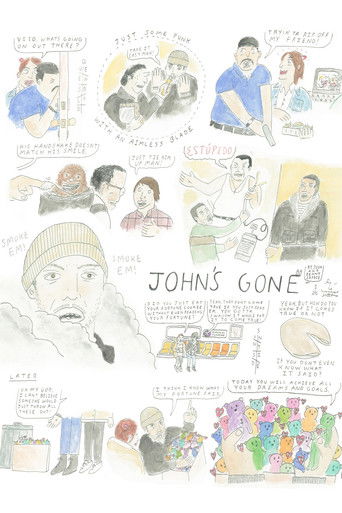 VITO, WHATS GOING
ON OUT THERE?
JUST SOME PUNK
TAKE IT
EASY MAN!
WITH AN AIMLESS BLADE
TRYIN TO RIP OFF
MY FRIEND!
HIS HANDSHAKE DOESN'T
MATCH HIS SMILE
JUST TIE HIM
UP MAN!
¡ESTÚPIDO!
SMOKE
EM!
SMOKE
EM!
JOHN'S GONE
DID YOU JUST EAT
YOUR FORTUNE COOKIE
WITHOUT EVEN READING
YOUR FORTUNE?
YEAH, BUT HOW DO YOU
KNOW IF IT COMES
TRUE OR NO?
IF YOU DON'T EVEN
KNOW WHAT
IT SAID?
LATER
OH MY GOD,
I CAN'T BELIEVE
SOMEONE WOULD
JUST THROW ALL
THESE OUT.
I THINK I KNOW WHAT
MY FORTUNE SAID.
TODAY YOU WILL ACHIEVE ALL
YOUR DREAMS AND GOALS.